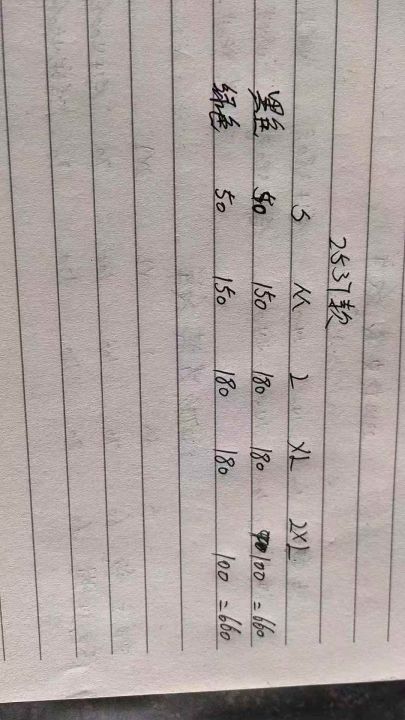 2537款
S M L XL 2XL
黑色 50 150 180 180 100 =660
绿色 50 150 180 180 100 =660